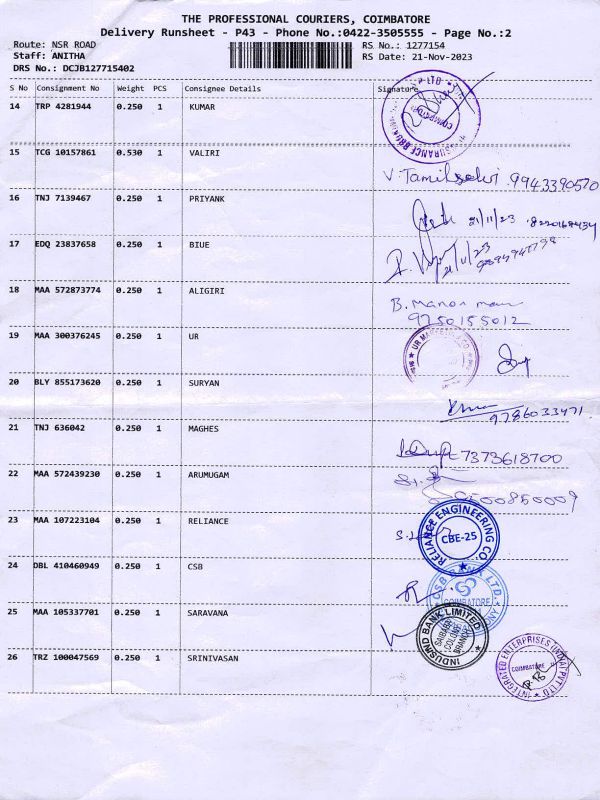 THE PROFESSIONAL COURIERS, COIMBATORE
Delivery Runsheet - P43 - Phone No.:0422-3505555 - Page No.:2
Route: NSR ROAD
RS No.: 1277154
Staff: ANITHA
RS Date: 21-Nov-2023
DRS No.: DCJB127715402
S No Consignment No Weight PCS Consignee Details Signature
14 TRP 4281944 0.250 1 KUMAR
COIMBATORE
15 TCG 10157861 0.530 1 VALIRI
V. Tamilselvi 9943390570
16 TNJ 7139467 0.250 1 PRIYANK
21/11/23
17 EDQ 23837658 0.250 1 BIUE
21/11/23
18 MAA 572873774 0.250 1 ALIGIRI
B. Manon
9750155012
19 MAA 300376245 0.250 1 UR
20 BLY 855173620 0.250 1 SURYAN
9786033471
21 TNJ 636042 0.250 1 MAGHES
7373618700
22 MAA 572439230 0.250 1 ARUMUGAM
23 MAA 107223104 0.250 1 RELIANCE
RELIANCE ENGINEERING CO.
CBE-25
24 DBL 410460949 0.250 1 CSB
CSB BANK LTD.
COIMBATORE
25 MAA 105337701 0.250 1 SARAVANA
INDUSIND BANK LIMITED
SAIBABA
COLONY
BRANCH
26 TRZ 100047569 0.250 1 SRINIVASAN
INTEGRATED ENTERPRISES (INDIA) PVT LTD
COIMBATORE